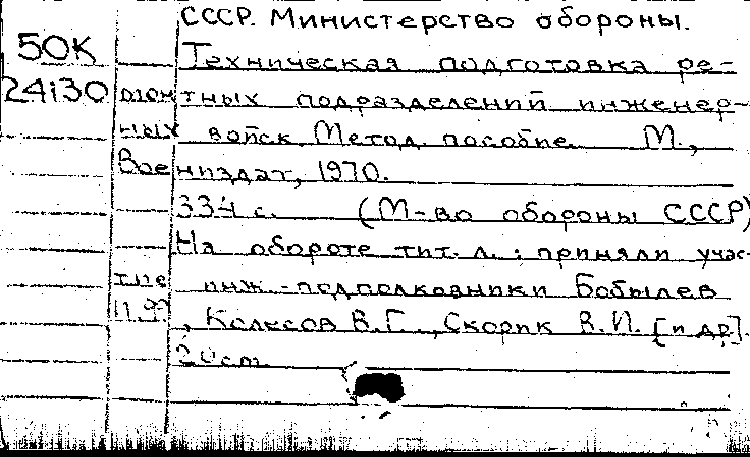 СССР. Министерство обороны.
50К Техническая подготовка ре-
24130 монтных подразделений инженер-
ных войск. Метод. пособие. М.,
Воениздат, 1970.
334 с. (М-во обороны СССР)
На обороте тит. л.: приняли учас-
тие инж.-подполковники Бобылев
, Колесов В.Г., Скорик В.И. [и др].
20 см.